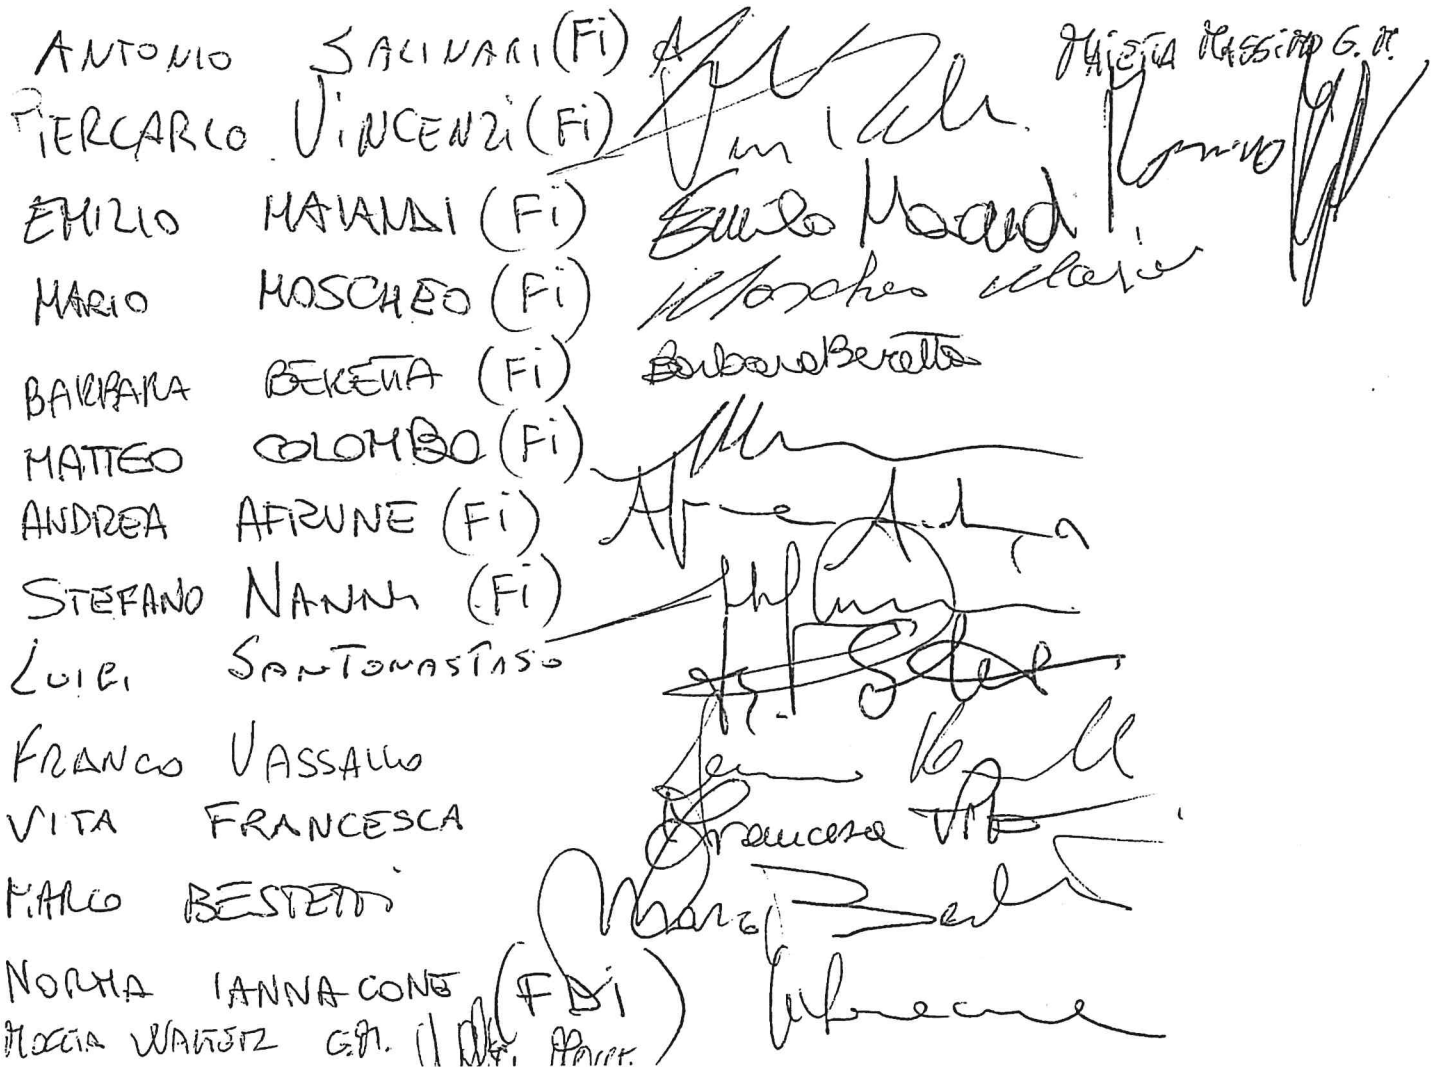 ANTONIO SALINARI (Fi)
MAIETTA MASSIMO G.M.
PIERCARLO VINCENZI (Fi)
EMILIO MAIANDI (Fi) Emilio Maiandi
MARIO MOSCHEO (Fi) Moscheo Mario
BARBARA BERETTA (Fi) Barbara Beretta
MATTEO COLOMBO (Fi)
ANDREA AFRUNE (Fi) Afrune Andrea
STEFANO NANNI (Fi)
LUIGI SANTOMASTASO
FRANCO VASSALLO
VITA FRANCESCA Francesca Vita
MARCO BESTETTI Marco Bestetti
NORMA IANNACONE (FDI)
MOCCIA WALTER G.M.